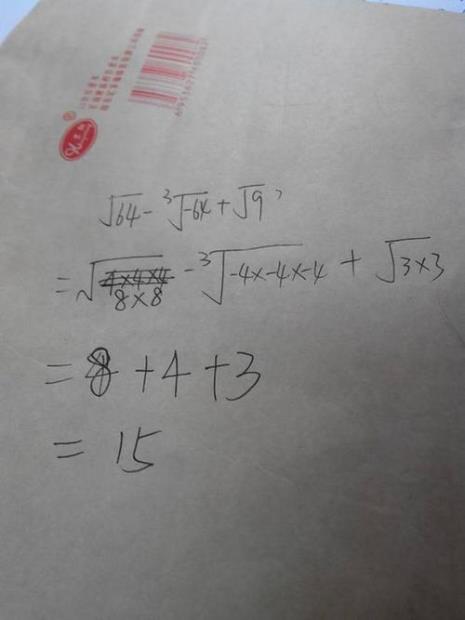 √64 - ³√-64 + √9
= √8×8 - ³√-4×-4×-4 + √3×3
= 8 + 4 + 3
= 15